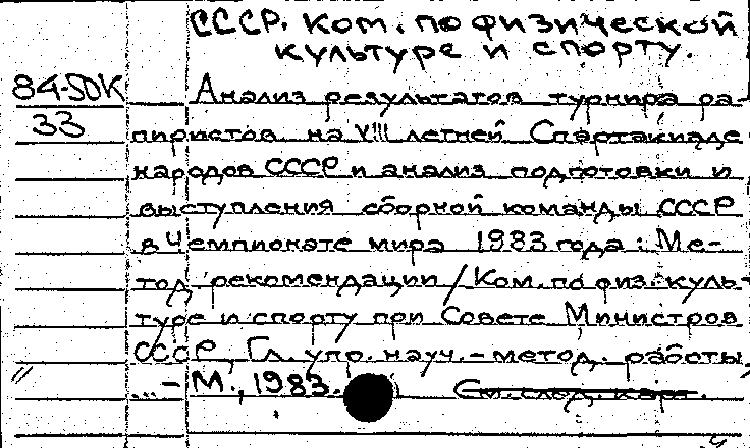 СССР. Ком. по физической
культуре и спорту.
84-5DK
33
Анализ результатов турнира ра-
пиристов на VIII летней Спартакиаде
народов СССР и анализ подготовки и
выступления сборной команды СССР
в Чемпионате мира 1983 года: Ме-
тод. рекомендации / Ком. по физ. куль-
туре и спорту при Совете Министров
СССР, Гл. упр. науч.-метод. работы,
... - М., 1983.
См. след. карт.